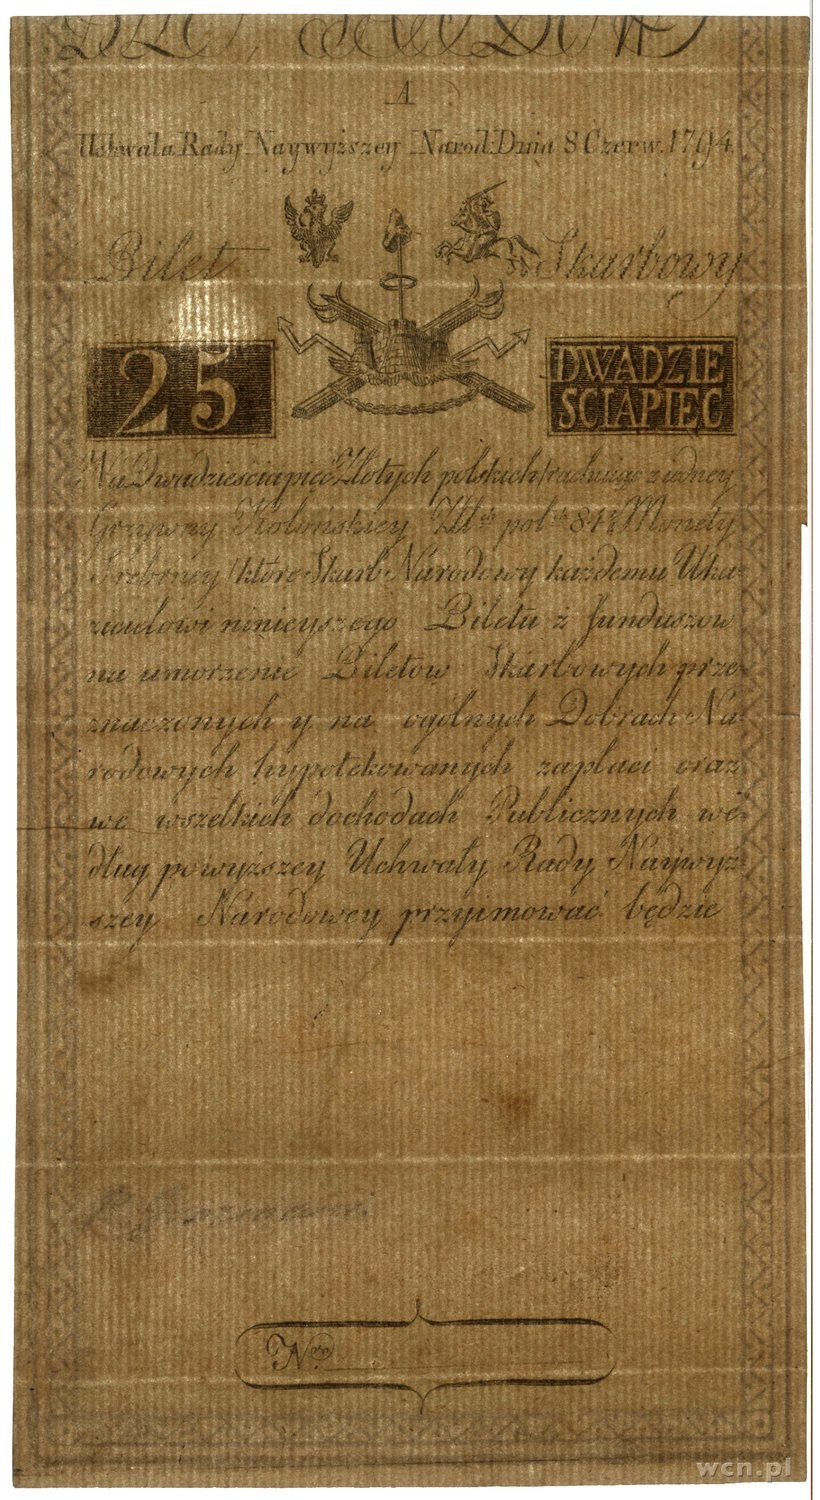 A
Uchwała Rady Naywyższey Narod: Dnia 8 Czerw. 1794.
Bilet Skarbowy
25 DWADZIE
SCIAPIEC
Na Dwadzieściapięć Złotych polskich rachuiąc z iedney
Grzywny Kolońskiey Zło: pol: 84½ Monety
Srebrney które Skarb Narodowy każdemu Uka-
zicielowi ninieyszego Biletu z funduszow
na umorzenie Biletow Skarbowych prze-
znaczonych y na ogólnych Dobrach Na-
rodowych hypotekowanych zapłaci oraz
we wszelkich dochodach Publicznych we-
dług powyższey Uchwały Rady Naywyż-
szey Narodowey przyimować będzie
Nro
wcn.pl